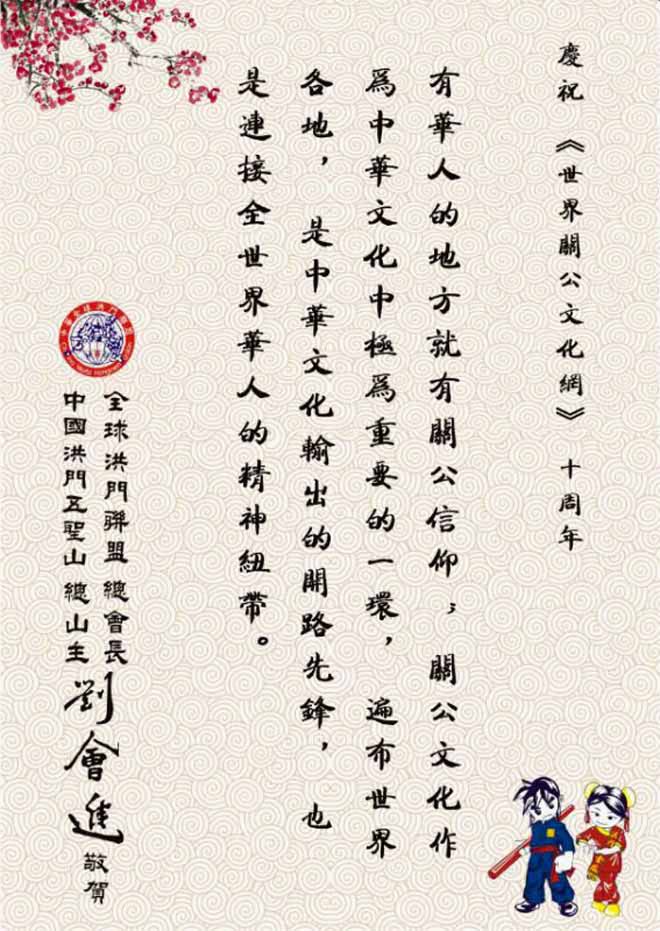 慶祝《世界關公文化網》十周年
有華人的地方就有關公信仰；關公文化作
為中華文化中極為重要的一環，遍布世界
各地，是中華文化輸出的開路先鋒，也
是連接全世界華人的精神紐帶。
全球洪門聯盟 總會長
中國洪門五聖山 總山主
劉會進 敬賀